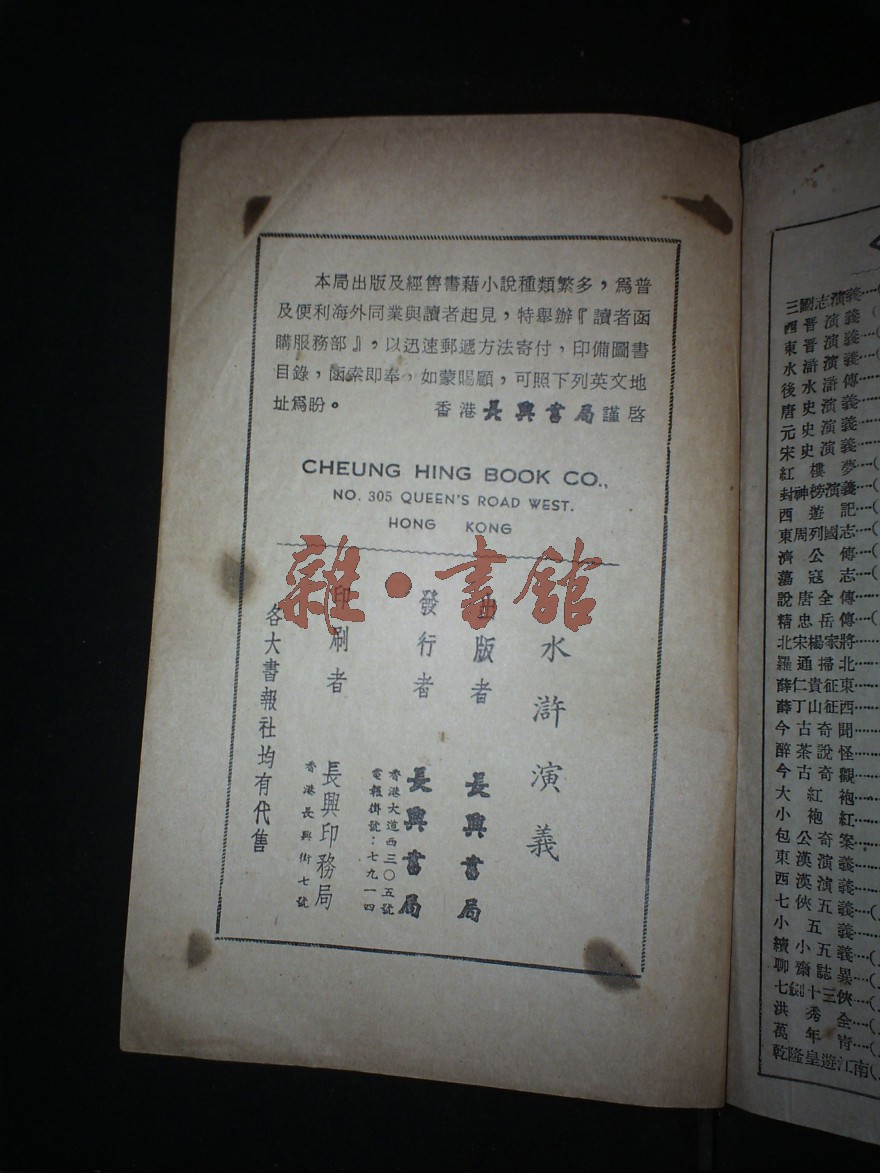 本局出版及經售書藉小說種類繁多，爲普
及便利海外同業與讀者起見，特舉辦『讀者函
購服務部』，以迅速郵遞方法寄付，印備圖書
目錄，函索即奉，如蒙賜顧，可照下列英文地
址爲盼。 香港長興書局謹啓
CHEUNG HING BOOK CO.,
NO. 305 QUEEN'S ROAD WEST.
HONG KONG
雜·書館
水滸演義
出版者 長興書局
發行者 長興書局
香港大道西三〇五號
電報掛號：七九一四
印刷者 長興印務局
香港長興街七號
各大書報社均有代售
三國志演義…(
西晋演義(
東晋演義…
水滸演義…(
後水滸傳…
唐史演義…
元史演義…
宋史演義…
紅樓夢…
封神榜演義…(
西遊記…
東周列國志…
濟公傳…(
蕩寇志…
說唐全傳…
精忠岳傳…(
北宋楊家將…
羅通掃北…
薛仁貴征東…
薛丁山征西…
今古奇聞…
醉茶說怪…
今古奇觀…
大紅袍…
小紅袍…
包公奇案…
東漢演義…
西漢演義…
七俠五義…(
小五義…
續小五義…(
聊齋誌異…(
七劍十三俠…(
洪秀全…(
萬年青…(
乾隆皇遊江南(